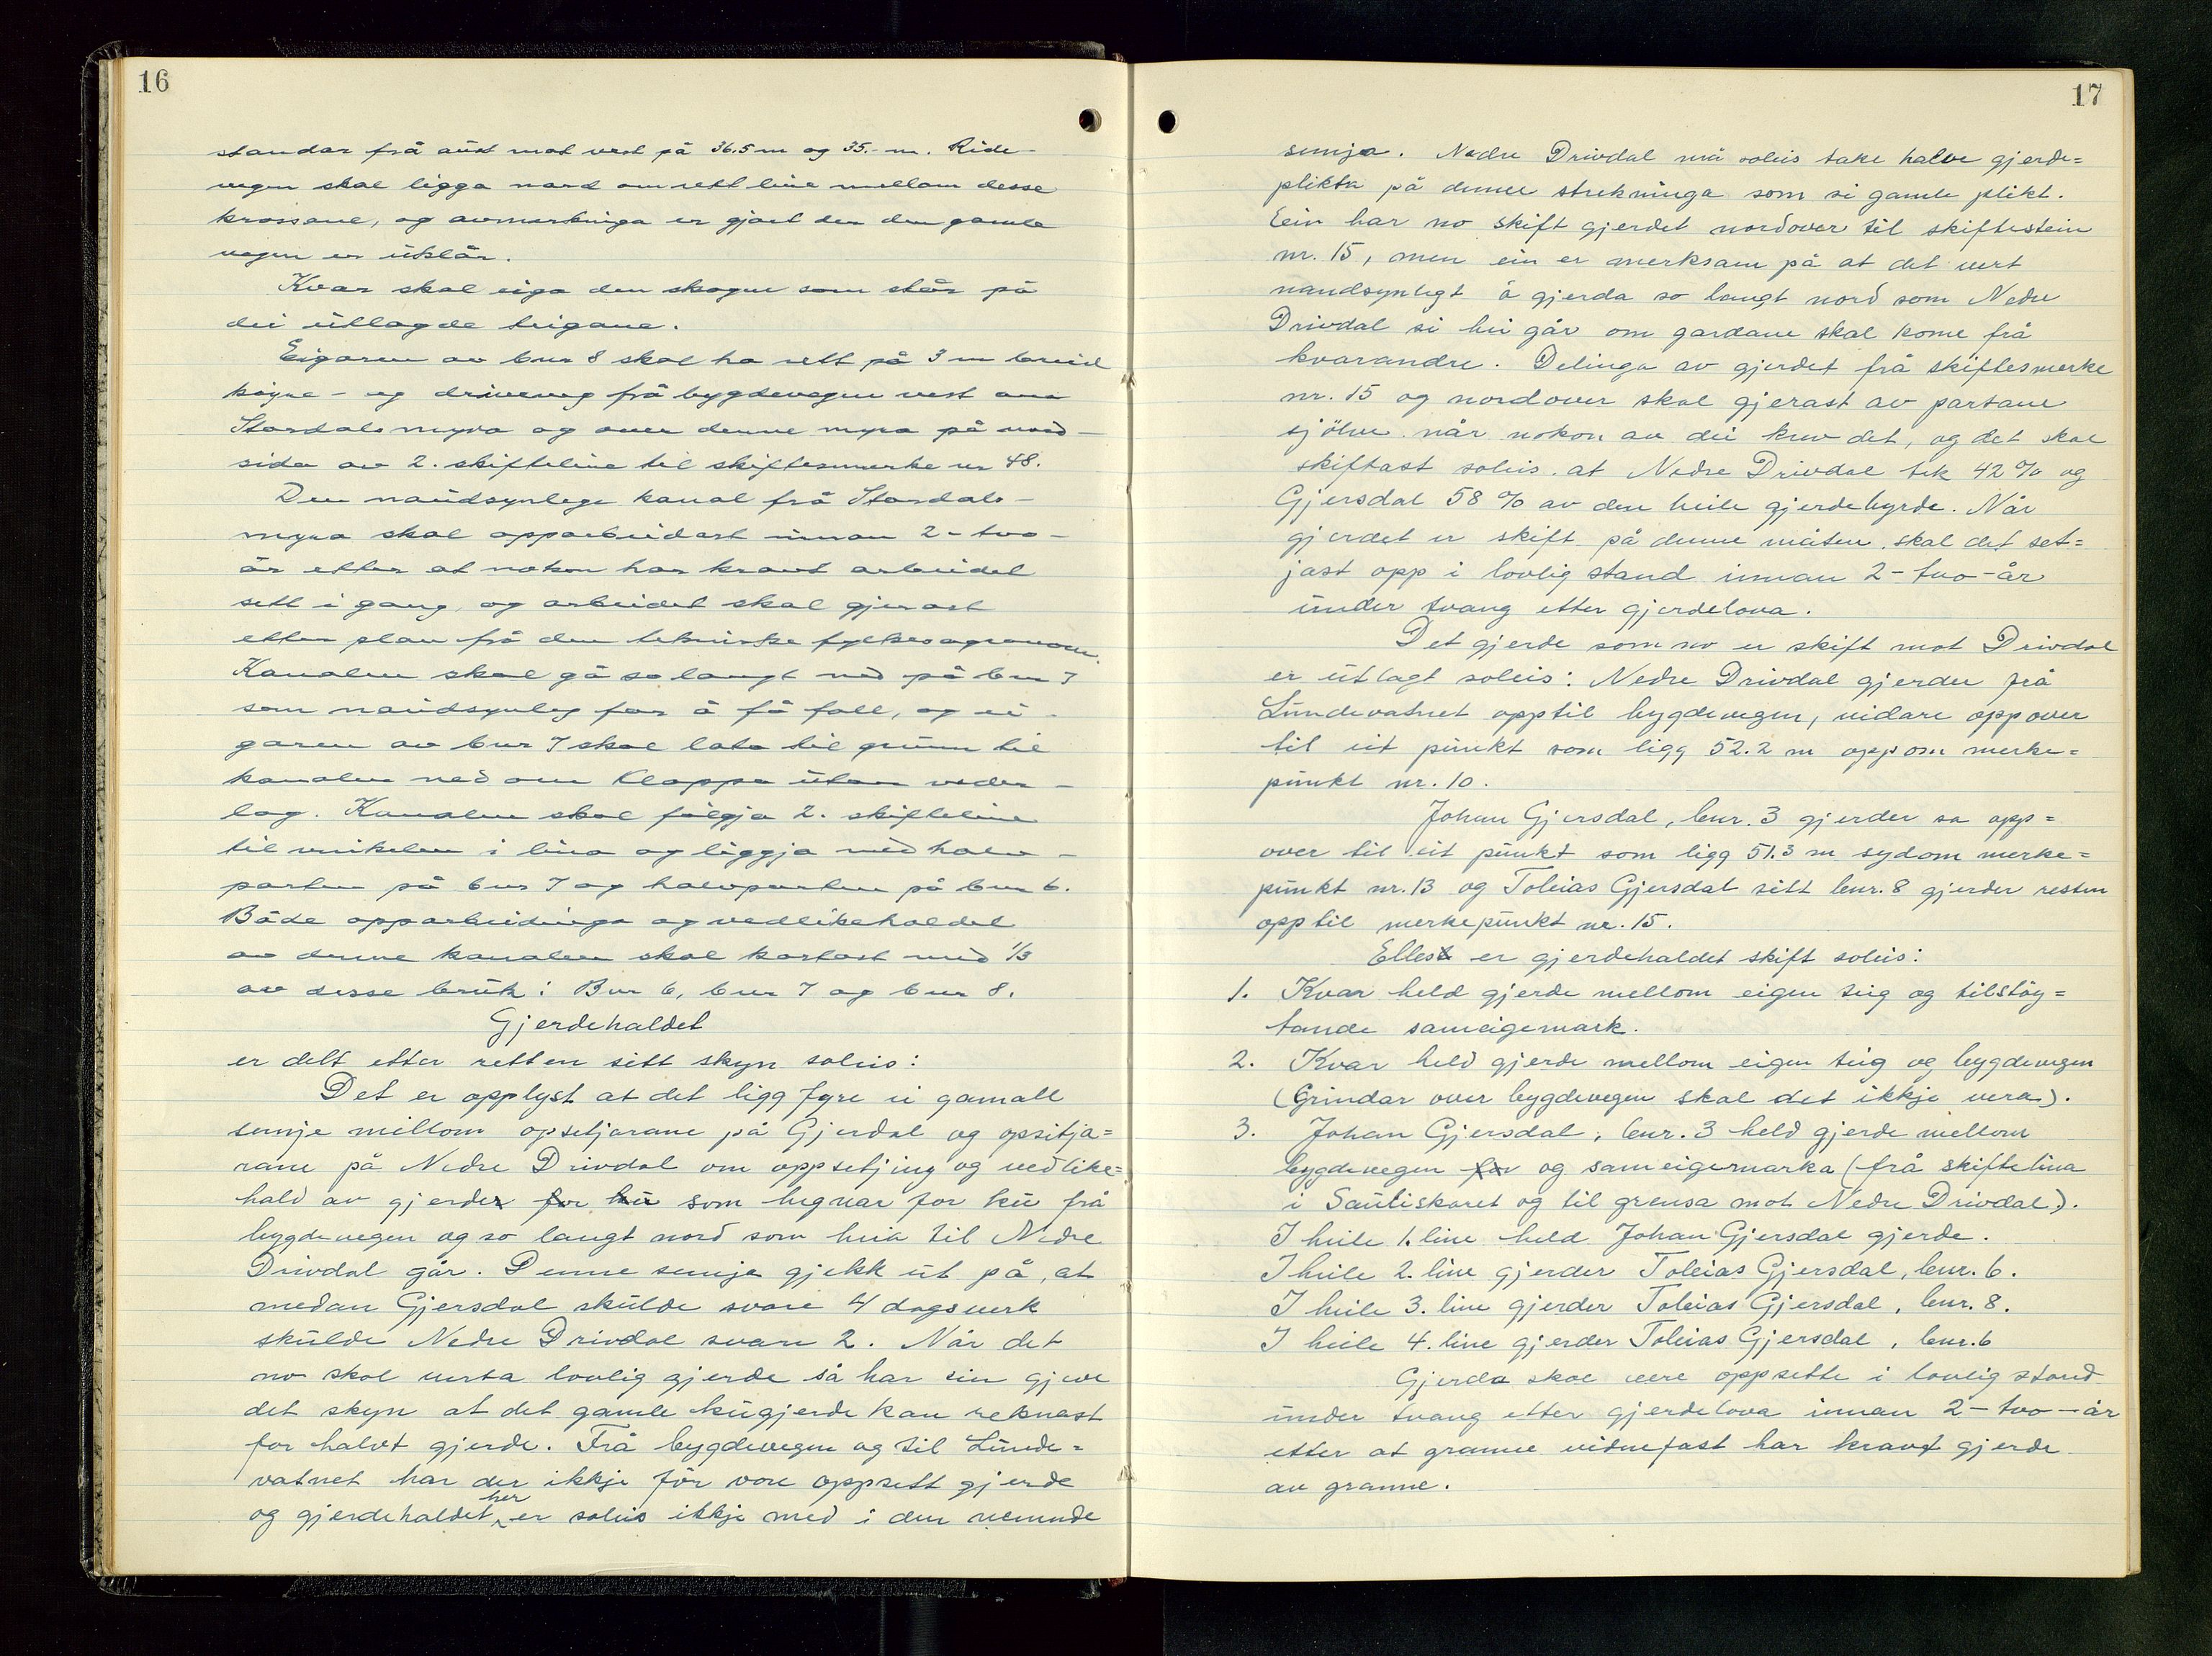 16
standar frå aust mot vest på 36.5 m og 35.- m. Ride-
vegen skal ligga nord om rett line mellom desse
krossane, og avmerkinga er gjort der den gamle
vegen er uklår.
Kvar skal eiga den skogen som står på
dei utlagde teigane.
Eigaren av bnr 8 skal ha rett på 3 m breid
køyre- og driveveg frå bygdevegen vest om
Stordalsmyra og over denne myra på nord-
sida av 2. skifteline til skiftesmerke nr 48.
Den naudsynlege kanal frå Stordals-
myra skal opparbeidast innan 2-two-
år etter at nokon har kravt arbeidet
sett i gang, og arbeidet skal gjerast
etter plan frå den tekniske fylkesagronom.
Kanalen skal gå so langt ned på bnr 7
som naudsynleg for å få fall, og ei-
garen av bnr 7 skal lata til grunn til
kanalen ned om Kloppa utan veder-
lag. Kanalen skal følgja 2. skifteline
til vinkelen i lina og liggja med halv-
parten på bnr 7 og halvparten på bnr 6.
Både opparbeidinga og vedlikehaldet
av denne kanalen skal kostast med 1/3
av desse bruk: Bnr 6, bnr 7 og bnr 8.
Gjerdehaldet
er delt etter retten sitt skyn soleis:
Det er opplyst at det ligg fyre ei gamall
semje millom opsitjarane på Gjerdal og opsitja=
rane på Nedre Drivdal om oppsetjing og vedlike=
hald av gjerder for ku som hegnar for ku frå
bygdevegen og so langt nord som heia til Nedre
Drivdal går. Denne semja gjekk ut på, at
medan Gjersdal skulde svare 4 dagsverk
skulde Nedre Drivdal svare 2. Når det
no skal verta lovlig gjerde så har ein gjeve
det skyn at det gamle kugjerde kan reknast
for halvt gjerde. Frå bygdevegen og til Lunde=
vatnet har der ikkje før vore oppsett gjerde
og gjerdehaldet her er soleis ikkje med i den nemnde
17
semja. Nedre Drivdal må soleis take halve gjerde=
plikta på denne strekninga som si gamle plikt.
Ein har no skift gjerdet nordover til skiftestein
nr. 15, men ein er merksam på at det vert
naudsynlegt å gjerda so langt nord som Nedre
Drivdal si hei går om gardane skal kome frå
kvarandre. Delinga av gjerdet frå skiftesmerke
nr. 15 og nordover skal gjerast av partane
sjölve når nokon av dei krev det, og det skal
skiftast soleis at Nedre Drivdal tek 42 % og
Gjersdal 58 % av den heile gjerdebyrde. Når
gjerdet er skift på denne måten skal det set=
jast opp i lovlig stand innan 2-two-år
under tvang etter gjerdelova.
Det gjerde som no er skift mot Drivdal
er utlagt soleis: Nedre Drivdal gjerder frå
Lundevatnet opptil bygdevegen, vidare oppover
til eit punkt som ligg 52.2 m oppom merke=
punkt nr. 10.
Johan Gjersdal, bnr. 3 gjerder sa opp=
over til eit punkt som ligg 51.3 m sydom merke=
punkt nr. 13 og Tobias Gjersdal sitt bnr. 8 gjerder resten
opptil merkepunkt nr. 15.
Elles er gjerdehaldet skift soleis:
1. Kvar held gjerde mellom eigen teig og tilstöy=
tande sameigemark.
2. Kvar held gjerde mellom eigen teig og bygdevegen
(Grindar over bygdevegen skal det ikkje vera).
3. Johan Gjersdal, bnr. 3 held gjerde mellom
bygdevegen for og sameigemarka (frå skiftelina
i Sautiskaret og til grensa mot Nedre Drivdal).
I heile 1. line held Johan Gjersdal gjerde.
I heile 2. line gjerder Tobias Gjersdal, bnr. 6.
I heile 3. line gjerder Tobias Gjersdal, bnr. 8.
I heile 4. line gjerder Tobias Gjersdal, bnr. 6
Gjerda skal vere oppsette i lovlig stand
under tvang etter gjerdelova innan 2-two-år
etter at granne vidnefast har kravt gjerde
av granne.